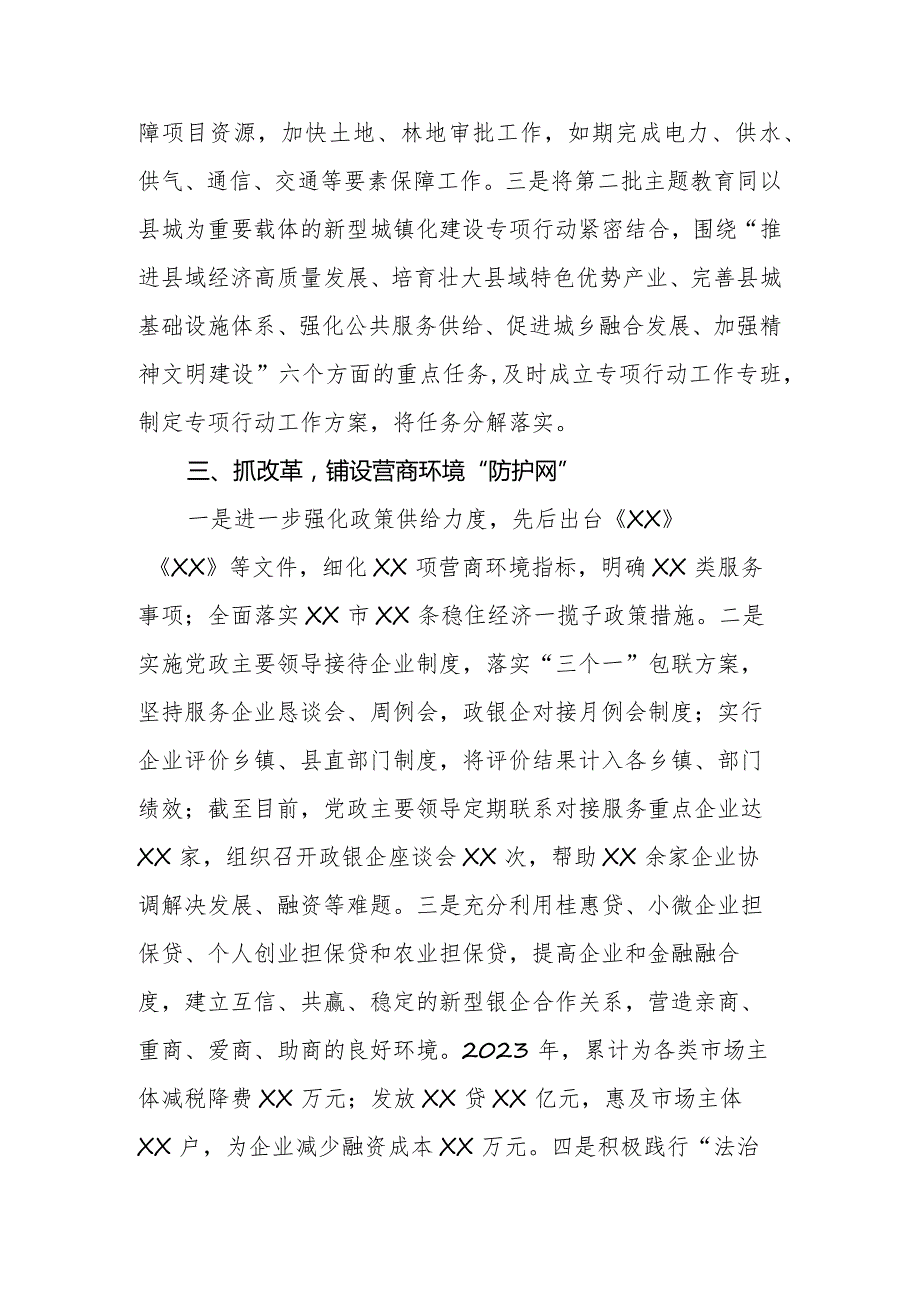 障项目资源，加快土地、林地审批工作，如期完成电力、供水、
供气、通信、交通等要素保障工作。三是将第二批主题教育同以
县城为重要载体的新型城镇化建设专项行动紧密结合，围绕“推
进县域经济高质量发展、培育壮大县域特色优势产业、完善县城
基础设施体系、强化公共服务供给、促进城乡融合发展、加强精
神文明建设”六个方面的重点任务,及时成立专项行动工作专班，
制定专项行动工作方案，将任务分解落实。
三、抓改革，铺设营商环境“防护网”
一是进一步强化政策供给力度，先后出台《XX》
《XX》等文件，细化 XX 项营商环境指标，明确 XX 类服务
事项；全面落实 XX 市 XX 条稳住经济一揽子政策措施。二是
实施党政主要领导接待企业制度，落实“三个一”包联方案，
坚持服务企业恳谈会、周例会，政银企对接月例会制度；实行
企业评价乡镇、县直部门制度，将评价结果计入各乡镇、部门
绩效；截至目前，党政主要领导定期联系对接服务重点企业达
XX 家，组织召开政银企座谈会 XX 次，帮助 XX 余家企业协
调解决发展、融资等难题。三是充分利用桂惠贷、小微企业担
保贷、个人创业担保贷和农业担保贷，提高企业和金融融合
度，建立互信、共赢、稳定的新型银企合作关系，营造亲商、
重商、爱商、助商的良好环境。2023 年，累计为各类市场主
体减税降费 XX 万元；发放 XX 贷 XX 亿元，惠及市场主体
XX 户，为企业减少融资成本 XX 万元。四是积极践行“法治